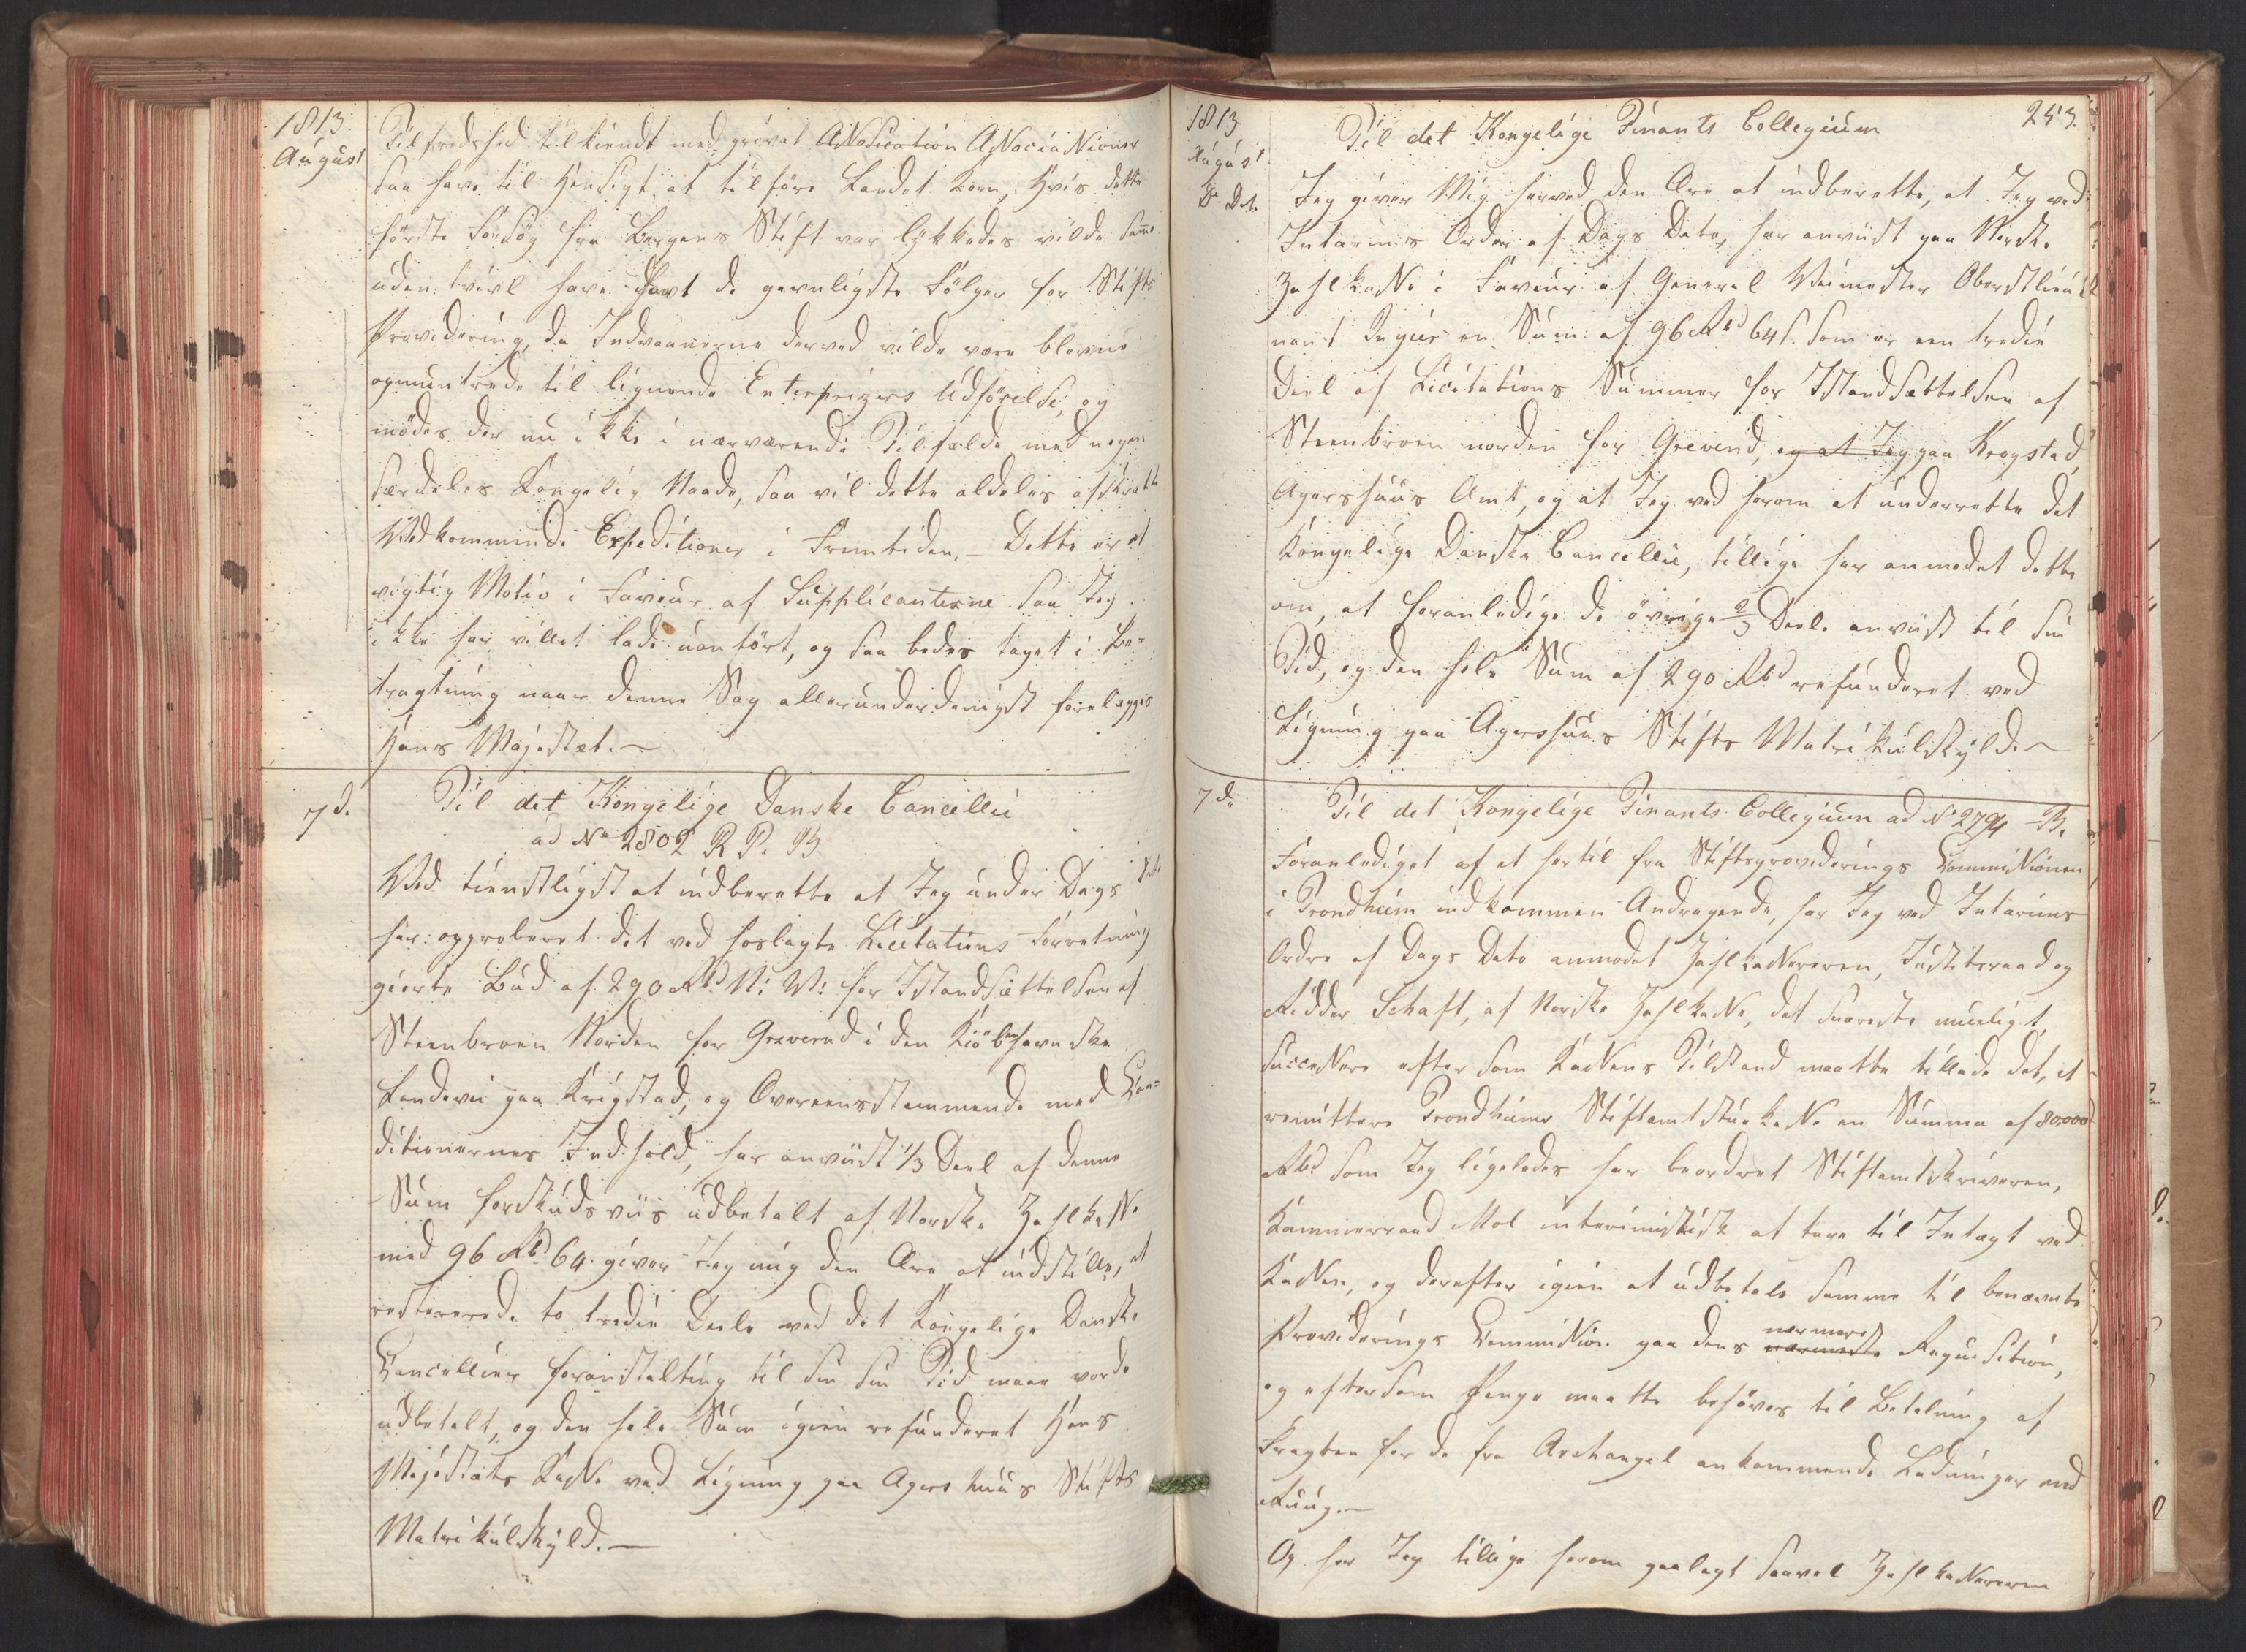 1813
August
Tilfredshed tilkiendt med privat Assosication Associassioner
saa have til Hensigt at tilföre Landet Korn, Hvis dette
förste Forsög fra Bergens Stift var lykkedes vilde som
uden tvivl have havt de gavnligste Fölger for Stifts
Providering, da Indvaanerne derved vilde være blevne
opmuntrede til lignende Enterprizers Udförelse, og
mödes der nu ikke i nærværende Tilfælde med nogen
særdeles Kongelig Naade, saa vil dette aldeles afskrække
Vedkommende Expeditioner i Fremtiden. – Dette er et
vigtig Motiv i Faveur af Supplicanterne saa Jeg
ikke har villet lade uanfört, og saa bedes taget i Be=
tragtning naar denne Sag allerunderdanigst forelægges
Hans Majestæt. –
7 d.
Til det Kongelige Danske Cancellie
ad No 2802 R P. B
Ved tienstligst at indberette at Jeg under Dags Dato
har approberet det ved forlagte Licitations Forretning
giorte Bud af 290 Rbd N: V: for Istandsættelsen af
Steenbroen Norden for Greverud i den Kiöbenhavnske
Landevei paa Krigstad, og Overeensstemmende med Con=
ditionernes Indhold, har anviist 1/3 Deel af denne
Sum forskudsviis udbetalt af Norske Zahlkasse
med 96 Rbd 64. giver Jeg mig den Ære at indstille, at
resterende to tredie Deele ved det Kongelige Danske
Cancellies foranstalting til sin sin Tid maae vorde
udbetalt, og den hele Sum igien refunderet Hans
Majestæts Kasse ved Ligning paa Agershuus Stifts
Matrikulskyld. –
1813
August
D. Dat.
253.
Til det Kongelige Finants Collegium
Jeg giver Mig herved den Ære at indberette, at Jeg ved
Interims Order af Dags Dato, har anviist paa Norske
Zahlkasse i Faveur af General Veimester Oberstlieut
nant Ingier en Sum af 96 Rbd 64 s. som er een tredie
Deel af Licitations Summen for Istandsættelsen af
Steenbroen norden for Greverud, og at Jeg paa Krogstad,
Agershuus Amt, og at Jeg ved herom at underrette det
Kongelige Danske Cancellie, tillige har anmodet dette
om, at foranledige de övrige 2/3 Deele anviist til sin
Tid, og den hele Sum af 290 Rbd refunderet ved
Ligning paa Agershuus Stifts Matrikulskyld. –
7 de
Til det Kongelige Finants Collegium ad No 2794 B.
Foranlediget af et hertil fra Stiftsproviderings Commissionen
i Trondhiem indkommen Andragende, har Jeg ved Interims
Ordre af Dags Dato anmodet Zahlkassereren, Justitsraad og
Ridder Schaft, af Norske Zahlkasse, det snareste mueligt,
succesive efter som Kassens Tilstand maatte tillade det, at
remittere Trondhiems Stiftamtstuekasse en Summa af 80,000
Rbd som Jeg ligeledes har beordret Stiftamtskriveren,
Kammerraad Mol interimistisk at tage til Indtægt ved
Kassen, og derefter igien at udbetale samme til benævnte
Providerings Commission paa dens nærmeste nærmere Requisition,
og eftersom Penge maatte behöves til Betaling af
Fragten for de fra Archangel ankommende Ladninger med
Ruug. –
Og har Jeg tillige herom paalagt saavel Zahlkassereren